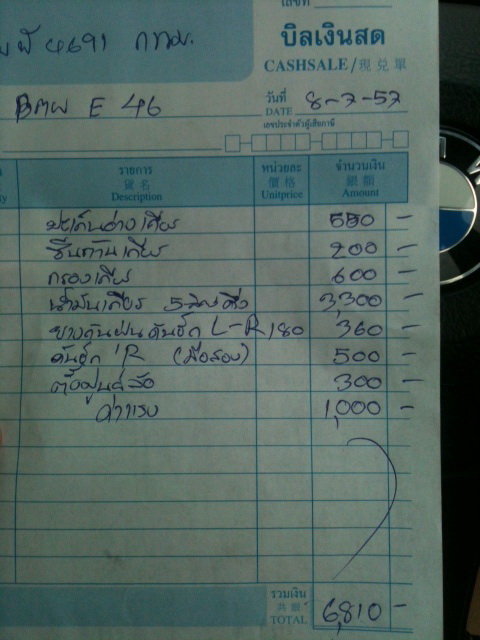 เลขที่
4691 กทม.
บิลเงินสด
CASHSALE/現兌單
BMW E 46
วันที่
DATE 8-7-57
เลขประจำตัวผู้เสียภาษี
รายการ หน่วยละ จำนวนเงิน
貨名 價格 銀額
Description Unitprice Amount
ปะเก็นอ่างเกียร์ 550 -
ซีลก้านเกียร์ 200 -
กรองเกียร์ 600 -
น้ำมันเกียร์ 3,300 -
ยางกันฝุ่นคันชัก L-R 180 360 -
คันชัก R (มือสอง) 500 -
ตั้งศูนย์ล้อ 300 -
ค่าแรง 1,000 -
รวมเงิน
共銀
TOTAL 6,810 -